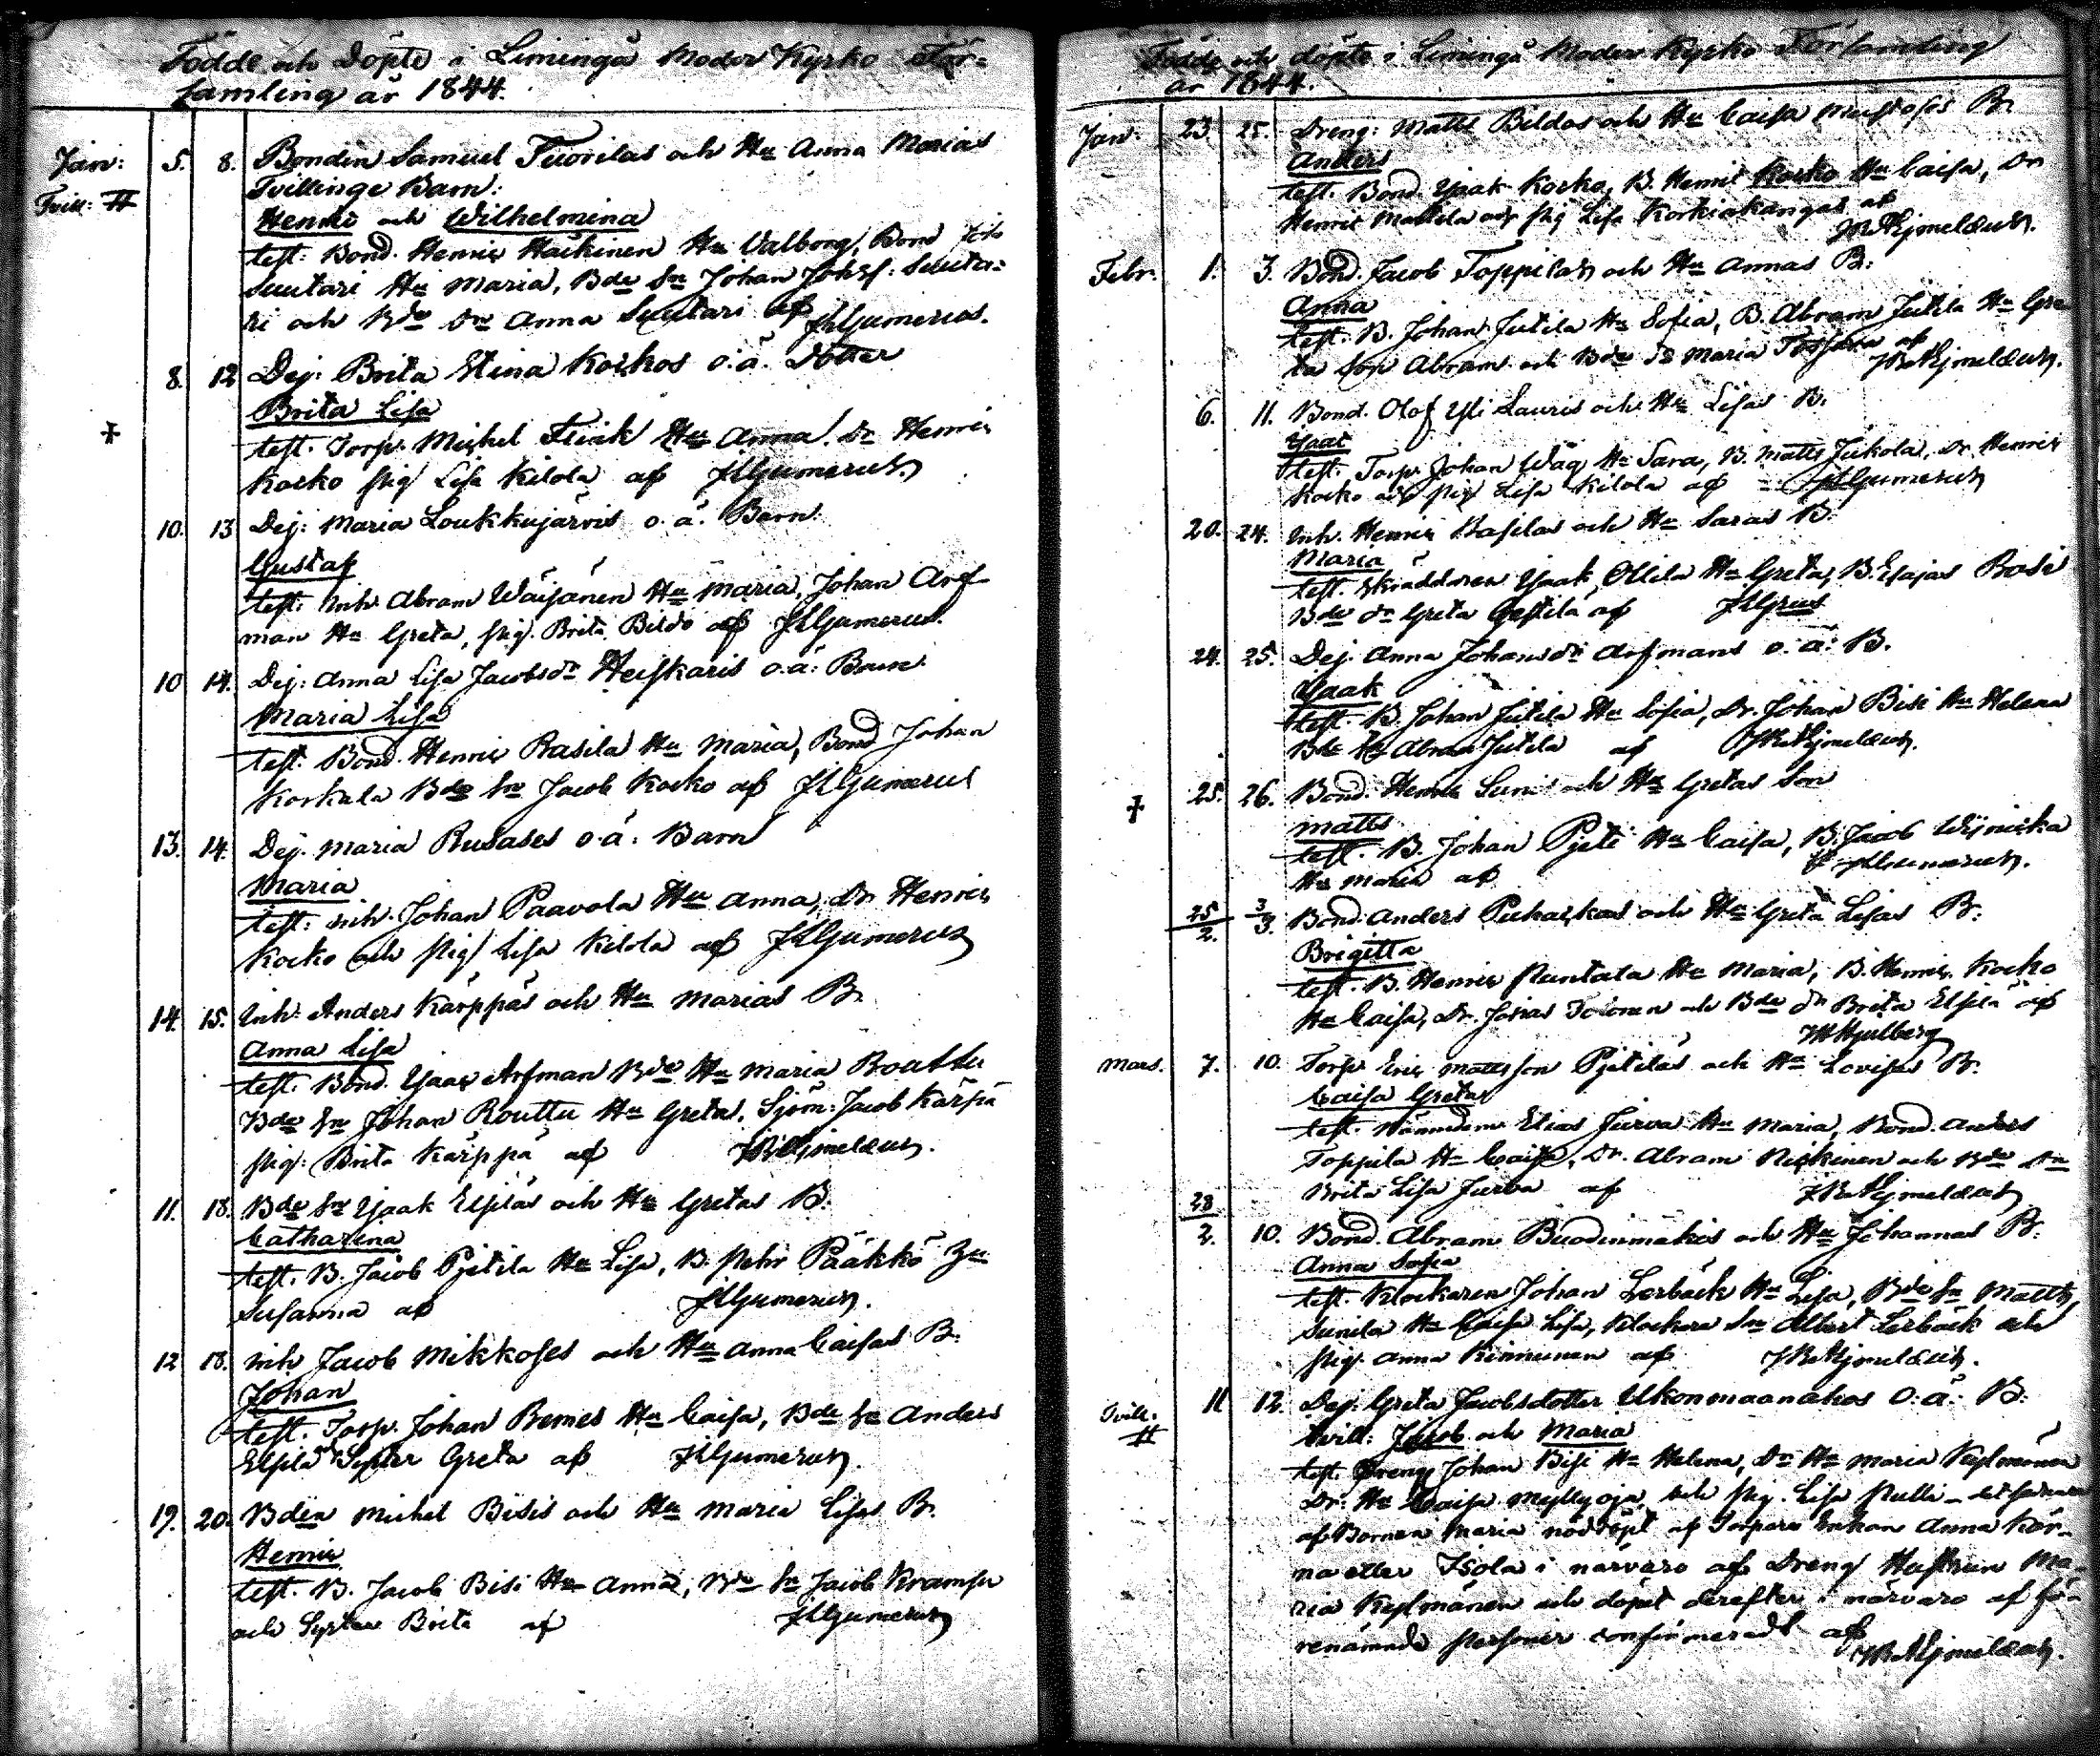 Födde och Döpte i Limingå Moder Kyrko För=
samling år 1844.
Jan: 5. 8. Bonden Samuel Tuorilas och Hu Anna Marias
Tvill: Tvillinge Barn:
Henric och Wilhelmina
test: Bond. Henric Haikinen Hu Valborg, Bond
Suutari Hu Maria, Bde Sn Johan Johsf: Suuta=
ri och Bde Dr Anna Suutari af JLGumerus.
8. 12 Dej: Brita Stina Koskos o.ä. Dotter
Brita Lisa
test. Torp. Michel Fluik Hu Anna. Dr Henric
Kocko pig Lisa Kilola af JLGumerus
10. 13 Dej: Maria Loukkujärvis o.ä. Barn.
Gustaf
test: Inh. Abram Wäisänen Hu Maria, Johan Arf
man Hu Greta, pig. Brita Bildo af JLGumerus.
10 14. Dej: Anna Lisa Jacobsdr Heiskaris o.ä: Barn.
Maria Lisa
test. Bond. Henric Rasila Hu Maria, Bond Johan
Korkala Bde Sn Jacob Kocko af JLGumerus
13. 14. Dej. Maria Rusases o.ä. Barn
Maria
test: inh. Johan Paavola Hu Anna, Dr Henric
Kocko och pig Lisa Kilola af JLGumerus
14. 15. Inh. Anders Kärppäs och Hu Marias B.
Anna Lisa
test. Bond. Isaac Arfman Bde Hu Maria Routtu
Bde Sn Johan Routtu Hu Greta. Sjöm: Jacob Kärpä
pig: Brita Kärppä af
11. 18. Bde Sn Isaak Elsiläs och Hu Gretas B.
Catharina
test. B. Jacob Pjetilä Hu Lisa, B. Pehr Pääkkö Hu
Susanna af JLGumerus.
12 18. inh. Jacob Mikkoses och Hu Anna Caisas B.
Johan
test. Torp. Johan Remes Hu Caisa, Bde Sn Anders
Elsilä Syster Greta af JLGumerus.
19. 20. Bden Michel Bisis och Hu Maria Lisas B.
Henric
test. B. Jacob Bisi Hu Anna, Bde Sn Jacob Krampu
och Syster Brita af JLGumerus
Födde och döpte i Limingå Moder Kyrko Församling
år 1844.
Jan: 23. 25. Dreng: Matts Bildos och Hu Caisa B.
Anders
test. Bond. Isaak Kocko, B. Henric Kocko Hu Caisa, Dr
Henric Mattila och pig Lisa Korkiakangas af
Febr. 1. 3. Bond. Jacob Toppilas och Hu Annas B:
Anna
test. B. Johan Jutila Hu Sofia, B. Abram Jutila Hu Gre
ta Son Abram och Bde Dr Maria af
6. 11. Bond. Olof Yli Lauris och Hu Lisas B.
Isaac
test. Torp. Johan Wåg Hu Sara, B. Matts Jukola, Dr. Henric
Kocko och pig Lisa Kilola af JLGumerus
20. 24. Inh. Henric Rasilas och Hu Saras B.
Maria
test. Skräddaren Isaak Ollila Hu Greta, B. Esajas Rasi
Bde dr Greta af
24. 25. Dej. Anna Johansdr Arfmans o.ä: B.
Isaak
test. B. Johan Jutila Hu Sofia, Dr. Johan Bisi Hu Helena
Bde Sn Abram Jutila af
25. 26. Bond. Henric Sunis och Hu Gretas Son
Matts
test. B. Johan Pjeti Hu Caisa, B. Jacob
Hu Maria af JLGumerus.
25/2. 3/3. Bond. Anders Puhackas och Hu Greta Lisas B:
Brigitta
test. B. Henric Runtala Hu Maria, B. Henric Kocko
Hu Caisa, Dr. Josias Toionen och Bde dr Brita Elsilä af
Mars. 7. 10. Torp. Eric Mattsson Pjetiläs och Hu Lovisas B.
Caisa Greta
test. Nämndem. Elias Jurva Hu Maria, Bond. Anders
Toppila Hu Caisa, Dr. Abram Niskinen och Bde Dr
Brita Lisa Jurva af
28/2. 10. Bond. Abram Buodinmäkis och Hu Johannas B.
Anna Sofia
test. Klockaren Johan Lerbäck Hu Lisa, Bde Sn Matts
Sunila Hu Caisa Lisa, Klockare Sn Albert Lerbäck och
pig. Anna Kinnunen af
Tvill. 11 12. Dej. Greta Jacobsdotter Ukonmaanahos O.ä: B.
tvill: Jacob och Maria
test. Dreng Johan Bisi Hu Helena, Dr Hu Maria Kylmänen
Dr: Hu Caisa Myllyoja, och pig. Lisa Pulli
af Barnen Maria nöddöpt af Torpare Enkan Anna Kär-
na eller Isola i närvaro af Dreng Hustrun Ma-
ria Kylmänen och döpet derefter i närvaro af fö-
renämnde personer confirmeradt af